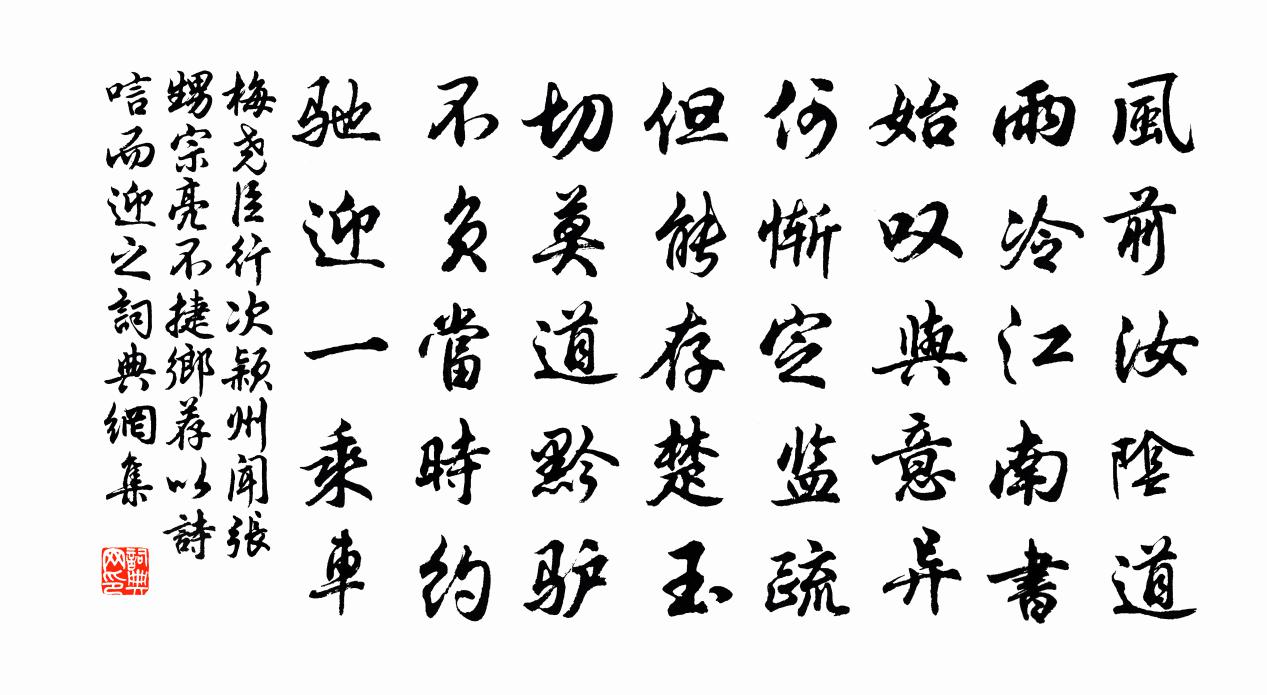 風前汝陰道
雨冷江南書
始叹與意异
何惭定监疏
但能存楚玉
切莫道黔驴
不负當時約
驰迎一乘車
梅尧臣行次颖州闻張
甥宗亮不捷鄉荐以詩
唁而迎之詞典網集
詞典網印